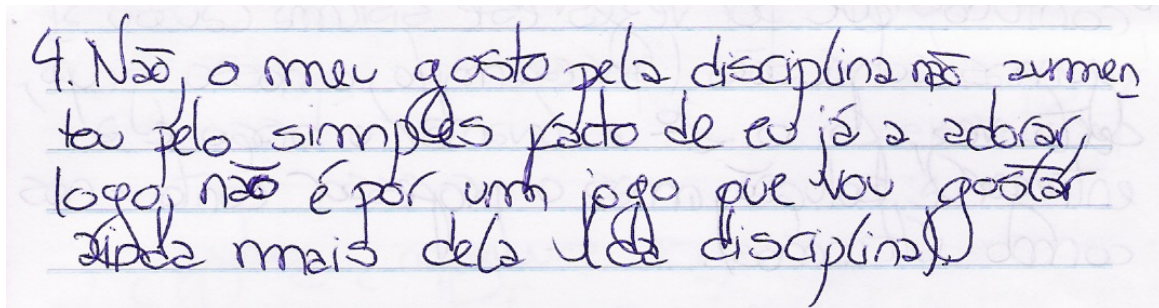 4. Não, o meu gosto pela disciplina não aumen
tou pelo simples facto de eu já a adorar,
logo, não é por um jogo que vou gostar
ainda mais dela (da disciplina).